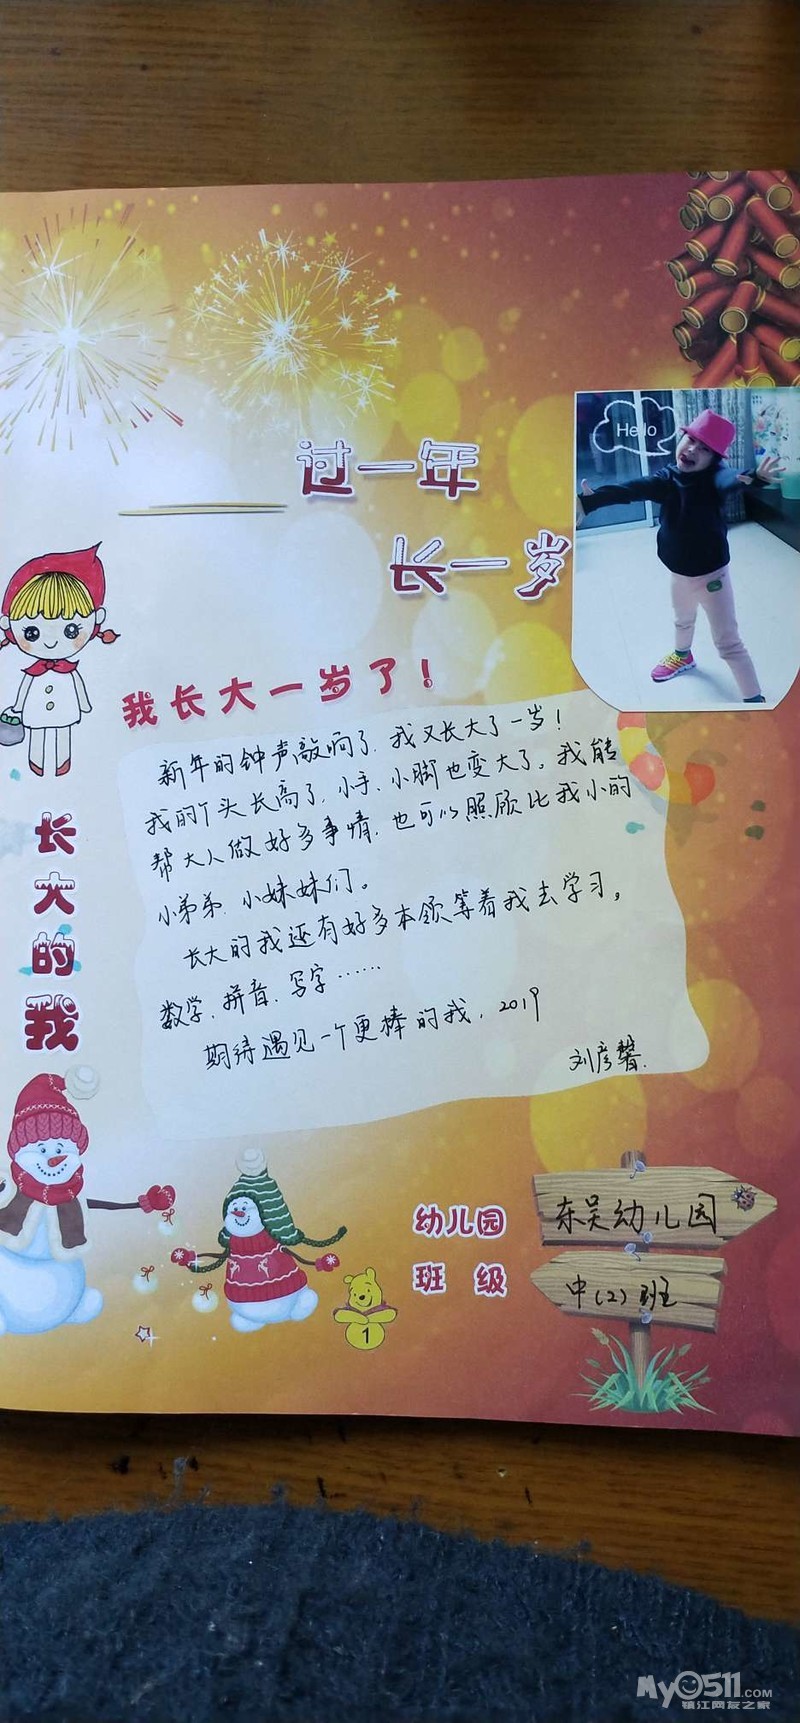 Hello
过一年
长一岁
我长大一岁了！
新年的钟声敲响了，我又长大了一岁！
我的个头长高了，小手、小脚也变大了。我能
帮大人做好多事情，也可以照顾比我小的
小弟弟、小妹妹们。
长大的我还有好多本领等着我去学习。
数学、拼音、写字……
期待遇见一个更棒的我，2019
刘彦馨.
长大的我
幼儿园
东吴幼儿园
班 级
中（2）班
1
My0511.COM
镇江网友之家